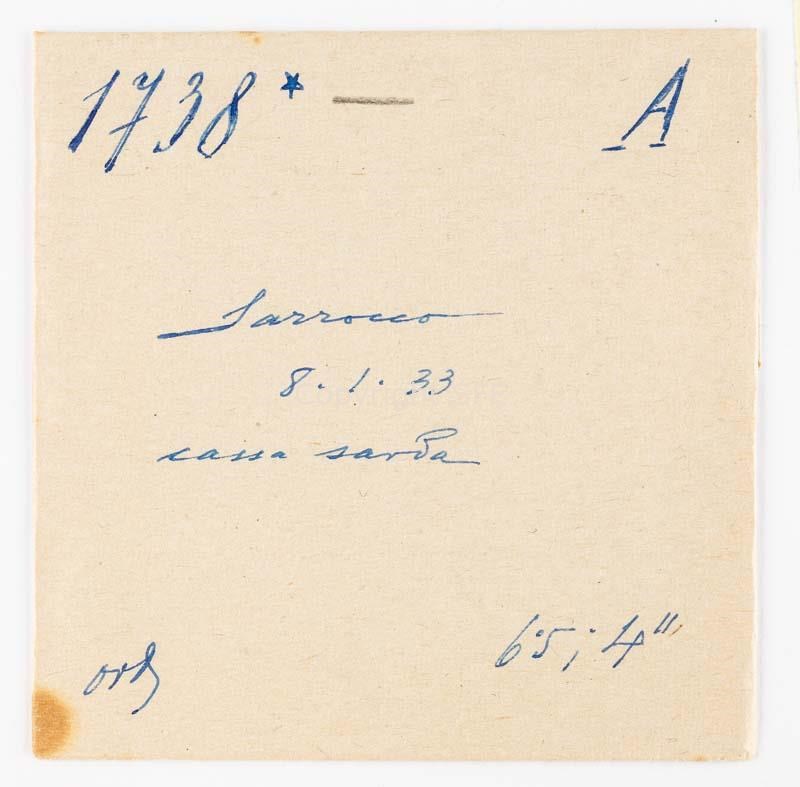 1738* — A
Sarrocco
8.1.33
cassa sarda
65; 4"
ord